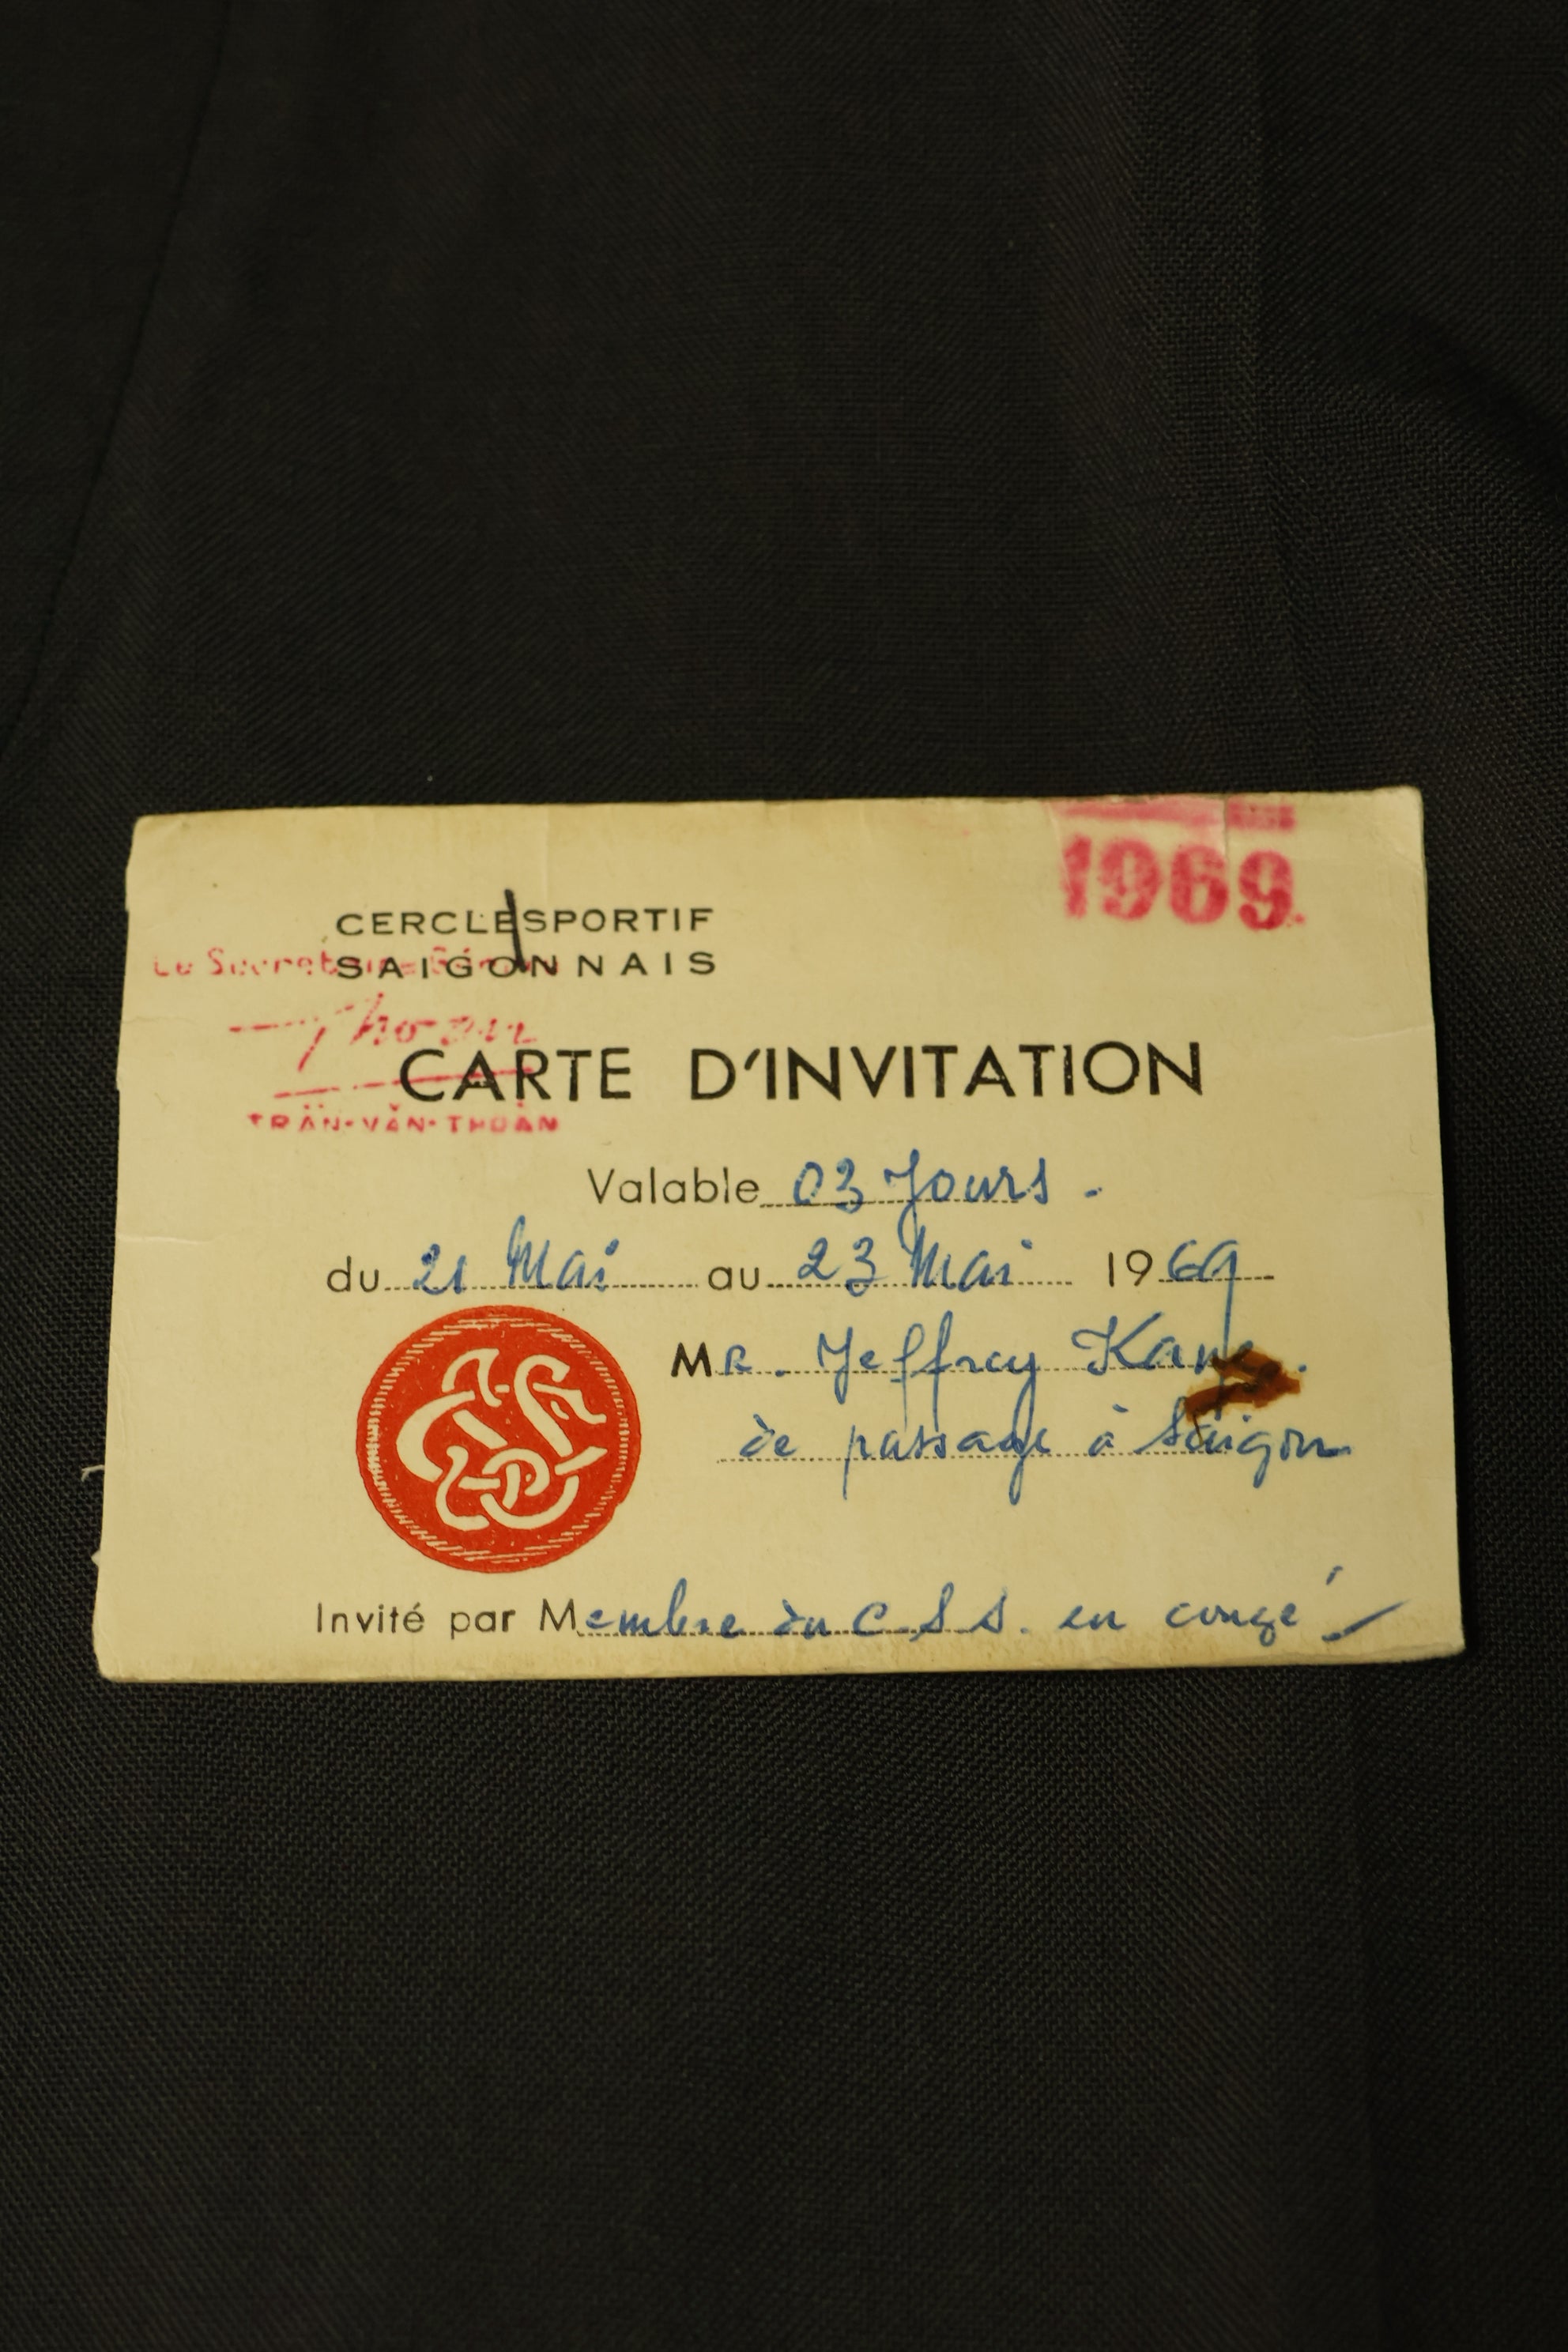 1969
CERCLE SPORTIF
SAIGONNAIS
Le Secrétaire Général
Thoàn
CARTE D'INVITATION
TRẦN-VĂN-THOÀN
Valable 03 Jours.
du 21 Mai au 23 Mai 1969
MR. Jeffrey Kaye.
de passage à Saigon
CSS
Invité par Membre du C.S.S. en congé